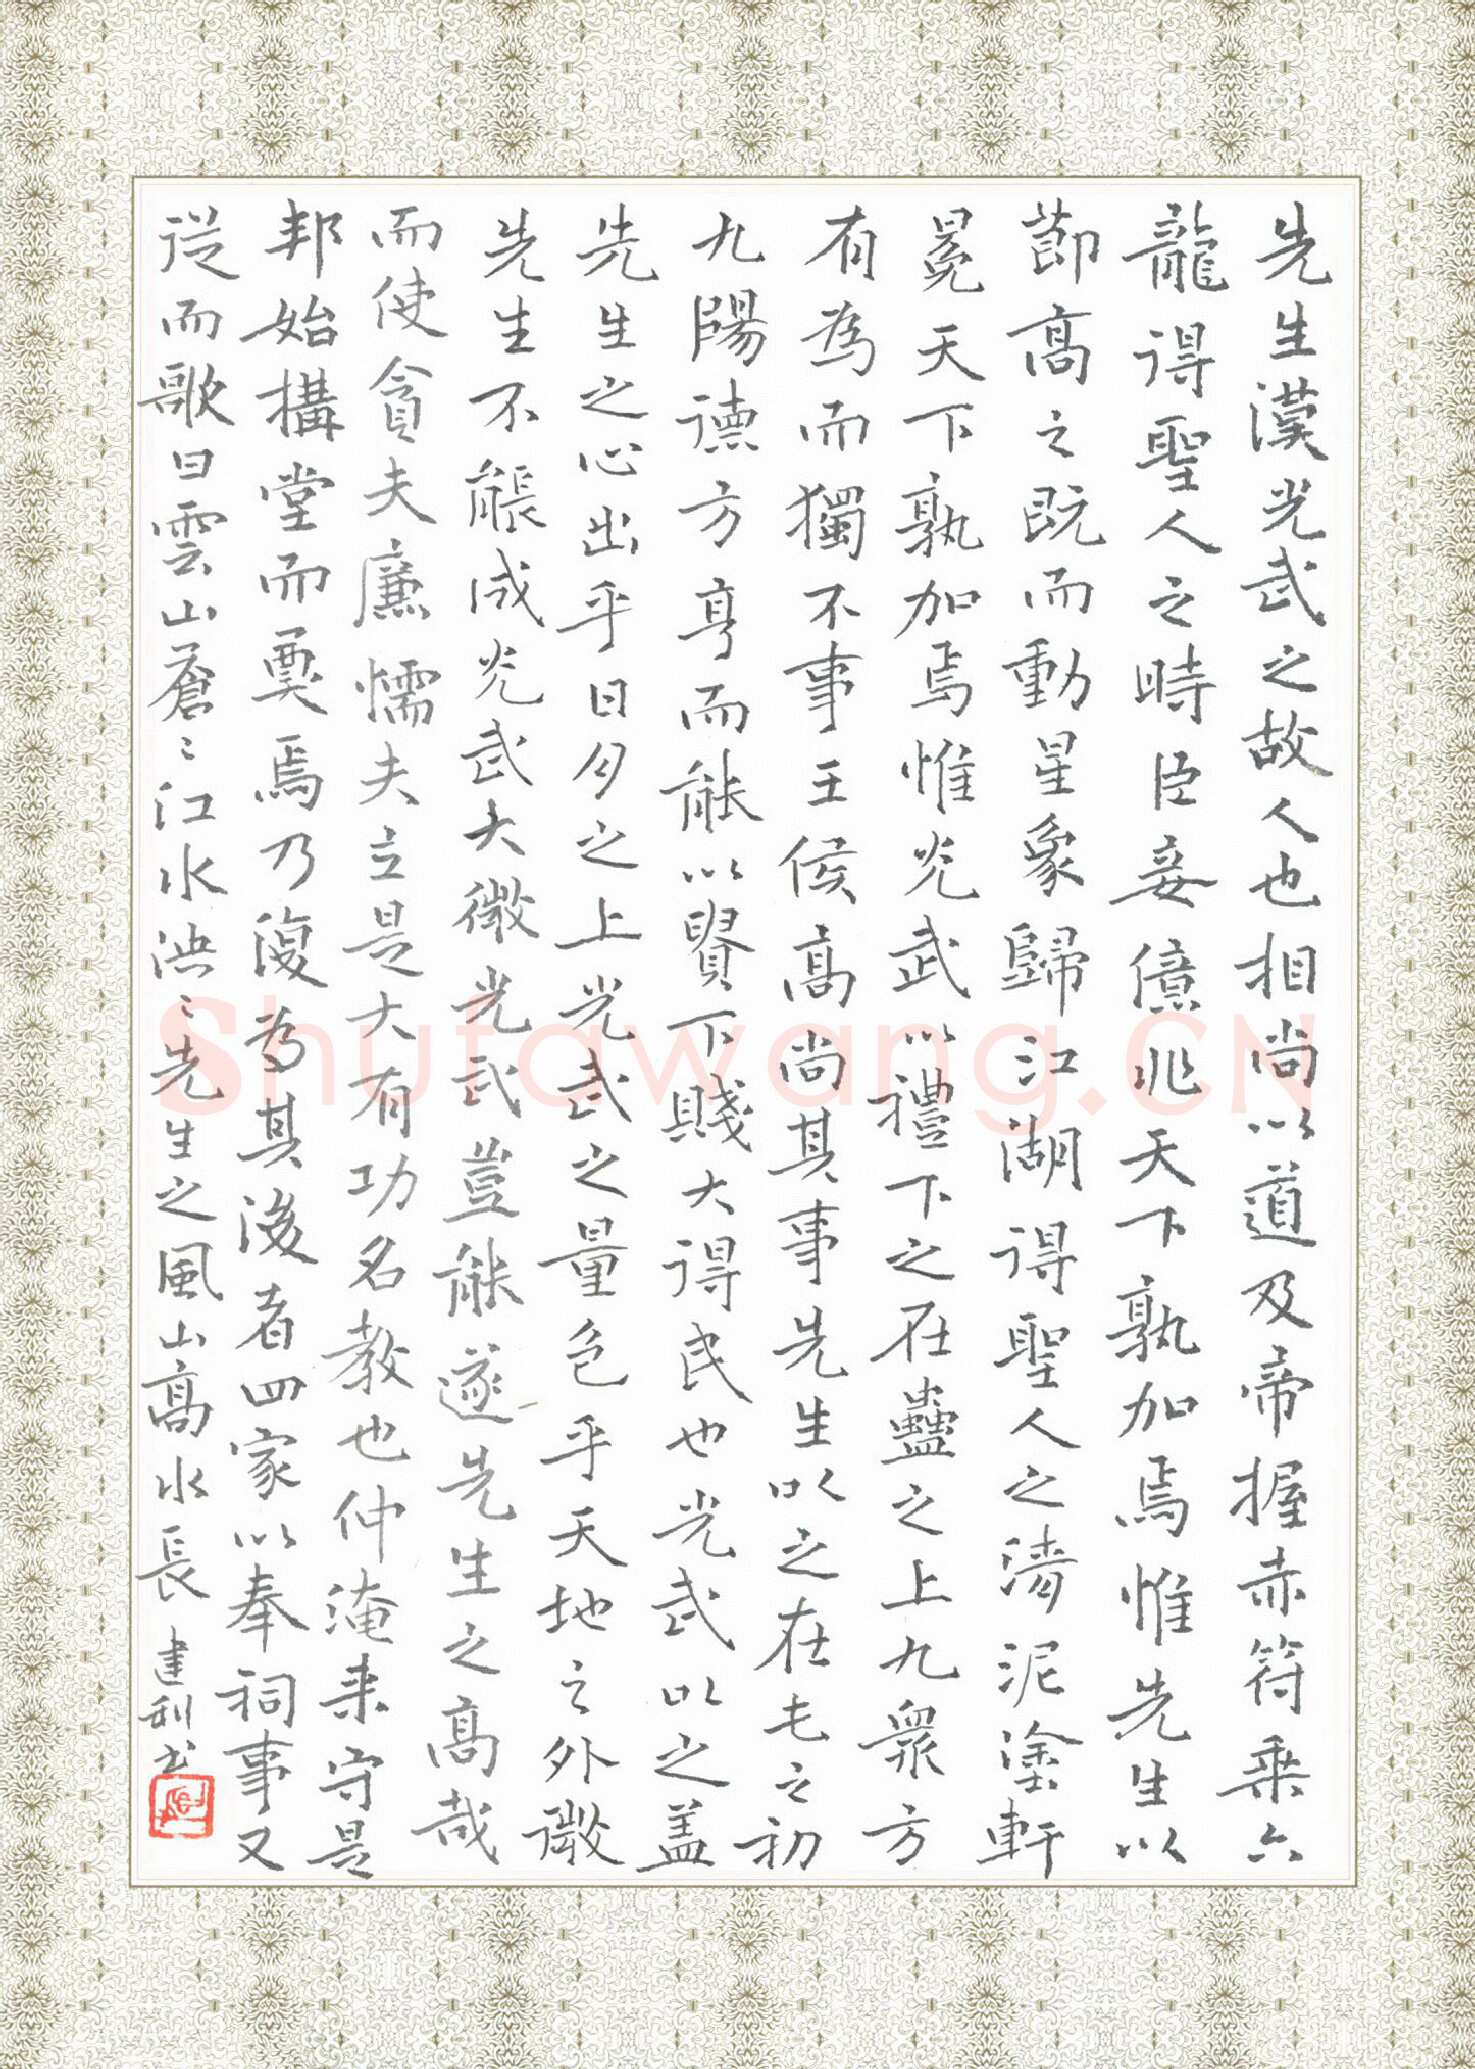 先生漢光武之故人也相尚以道及帝握赤符乘六
龍得聖人之時臣妾億兆天下孰加焉惟先生以
節高之既而動星象歸江湖得聖人之清泥塗軒
冕天下孰加焉惟光武以禮下之在蠱之上九衆方
有為而獨不事王侯高尚其事先生以之在屯之初
九陽德方亨而能以貴下賤大得民也光武以之蓋
先生之心出乎日月之上光武之量色乎天地之外微
先生不能成光武大微光武豈能遂先生之高哉
而使貪夫廉懦夫立是大有功名教也仲淹来守是
邦始構堂而奠焉乃復為其後者四家以奉祠事又
從而歌曰雲山蒼〻江水泱〻先生之風山高水長 建利书
Shufawang.CN